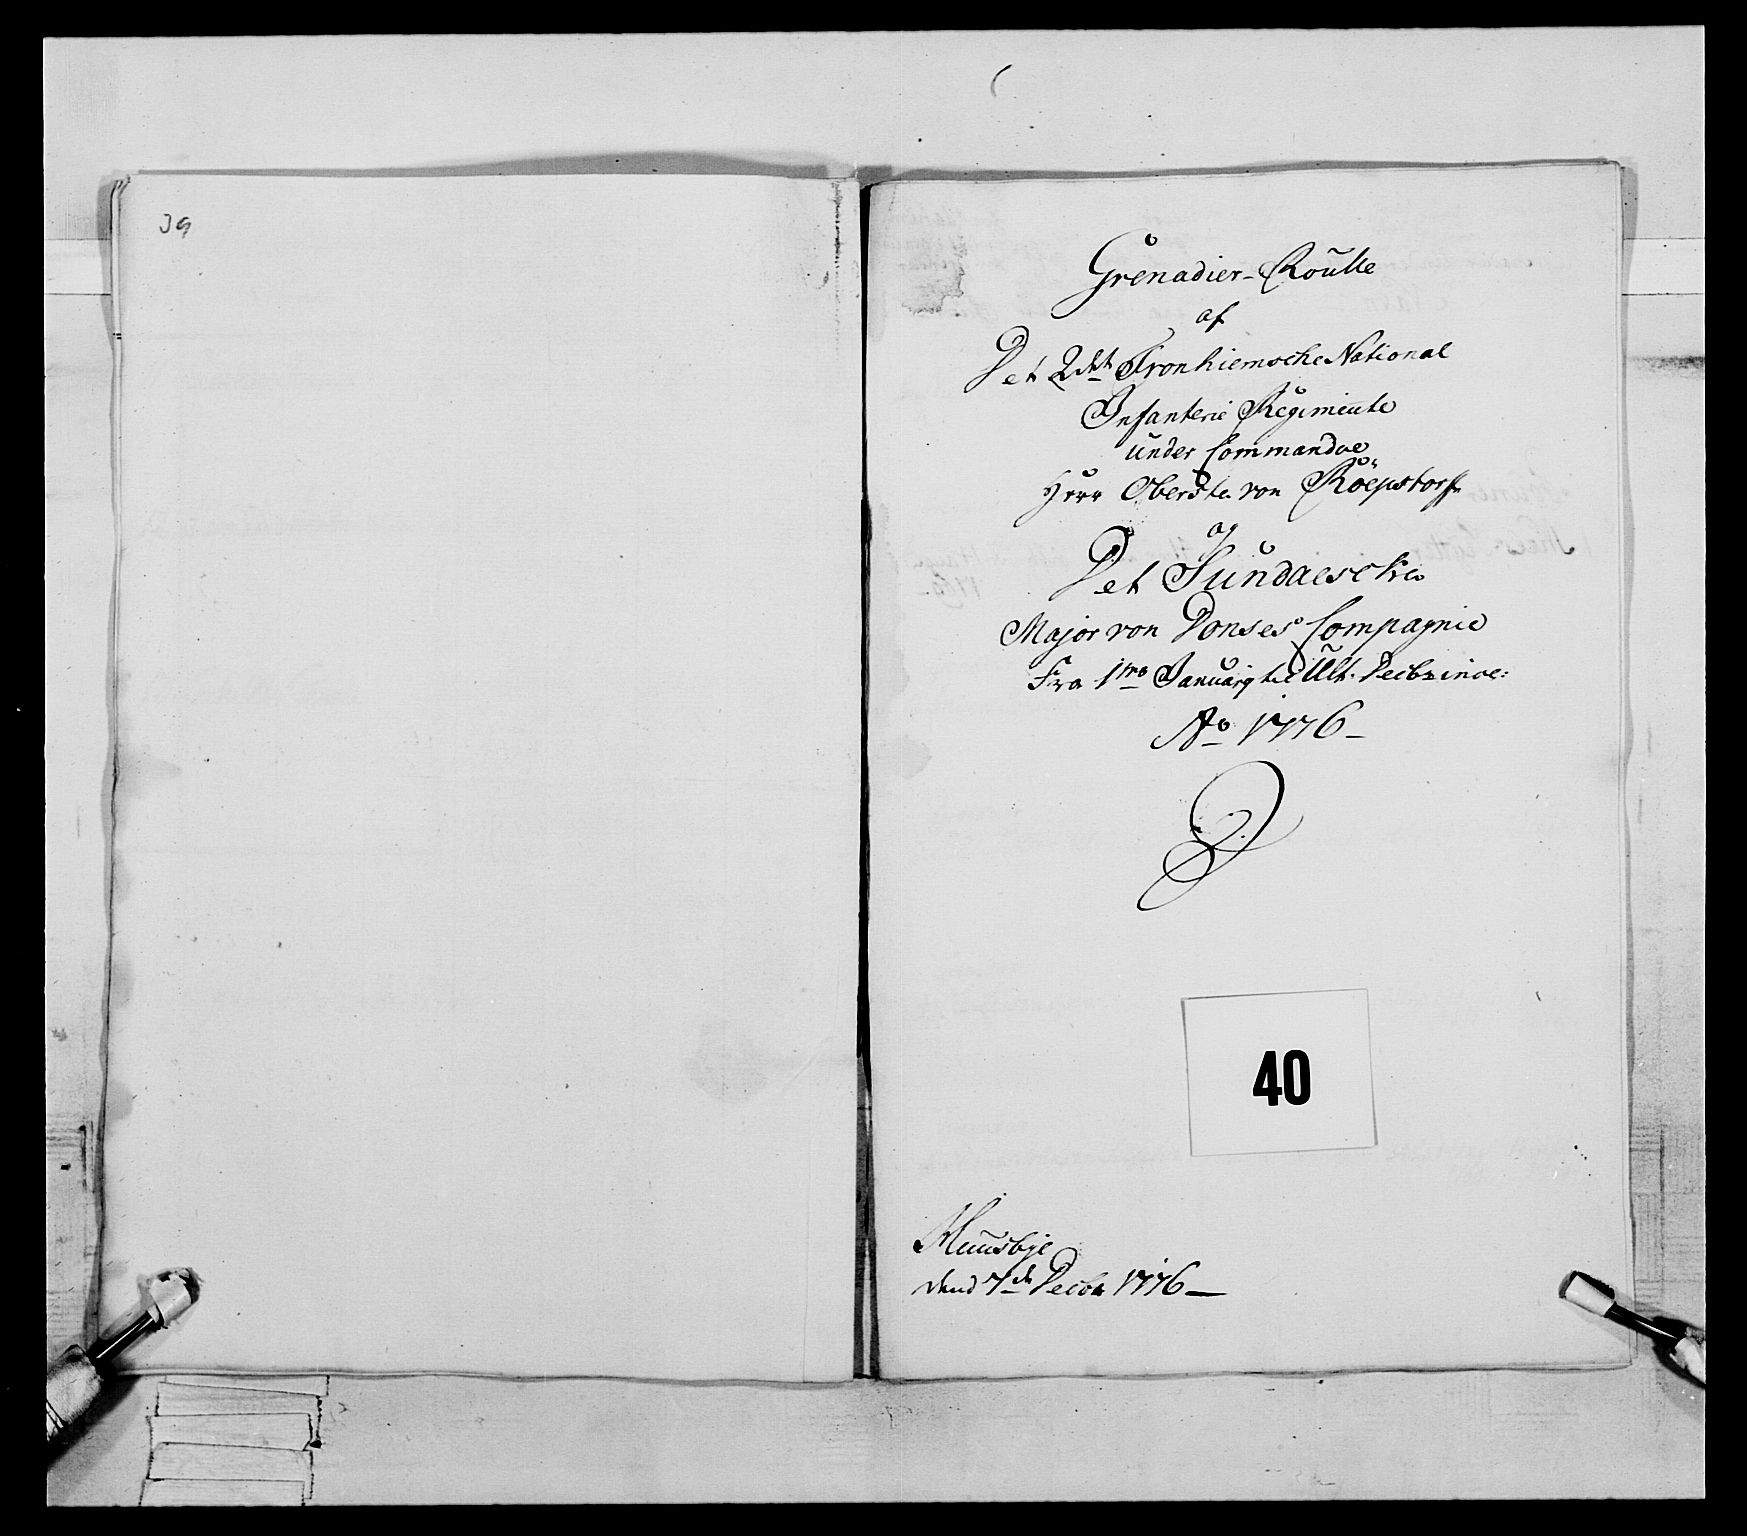 39
Grenadier-Roulle
af
Det 2det Tronhiemsche National
Infanterie Regimente
under Commandoe
Herr Oberste von Röepstorff
af
Det Sundaelske
Major von Donses Compagnie
Fra 1mo Januarij til Ult. Decbr: incl:
Ao 1776
40
Muusbye
dend 7de Decbr 1776